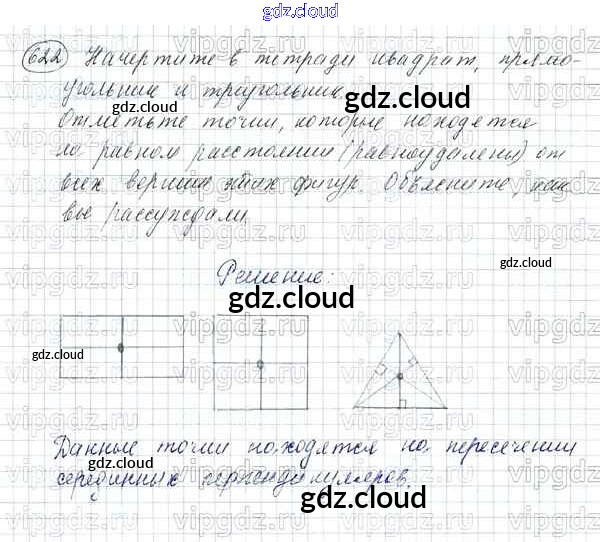 gdz.cloud
gdz.cloud
622 Начертите в тетради квадрат, прямо-
угольник и треугольник.
gdz.cloud
Отметьте точки, которые находятся
на равном расстоянии (равноудалены) от
всех вершин этих фигур. Объясните, как
gdz.cloud
вы рассуждали.
Решение:
gdz.cloud
gdz.cloud
gdz.cloud
gdz.cloud
gdz.cloud
Данные точки находятся на пересечении
серединных перпендикуляров.
gdz.cloud
gdz.cloud